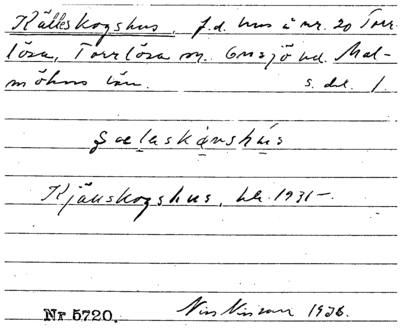 Källeskogshus, f.d. hus å nr. 20 Torr-
lösa, Torrlösa sn. Onsjö hd. Mal-
möhus län. s. del. 1.
Kjällskogshus, bb. 1931-.
Nr 5720. Nils Nilsson 1936.